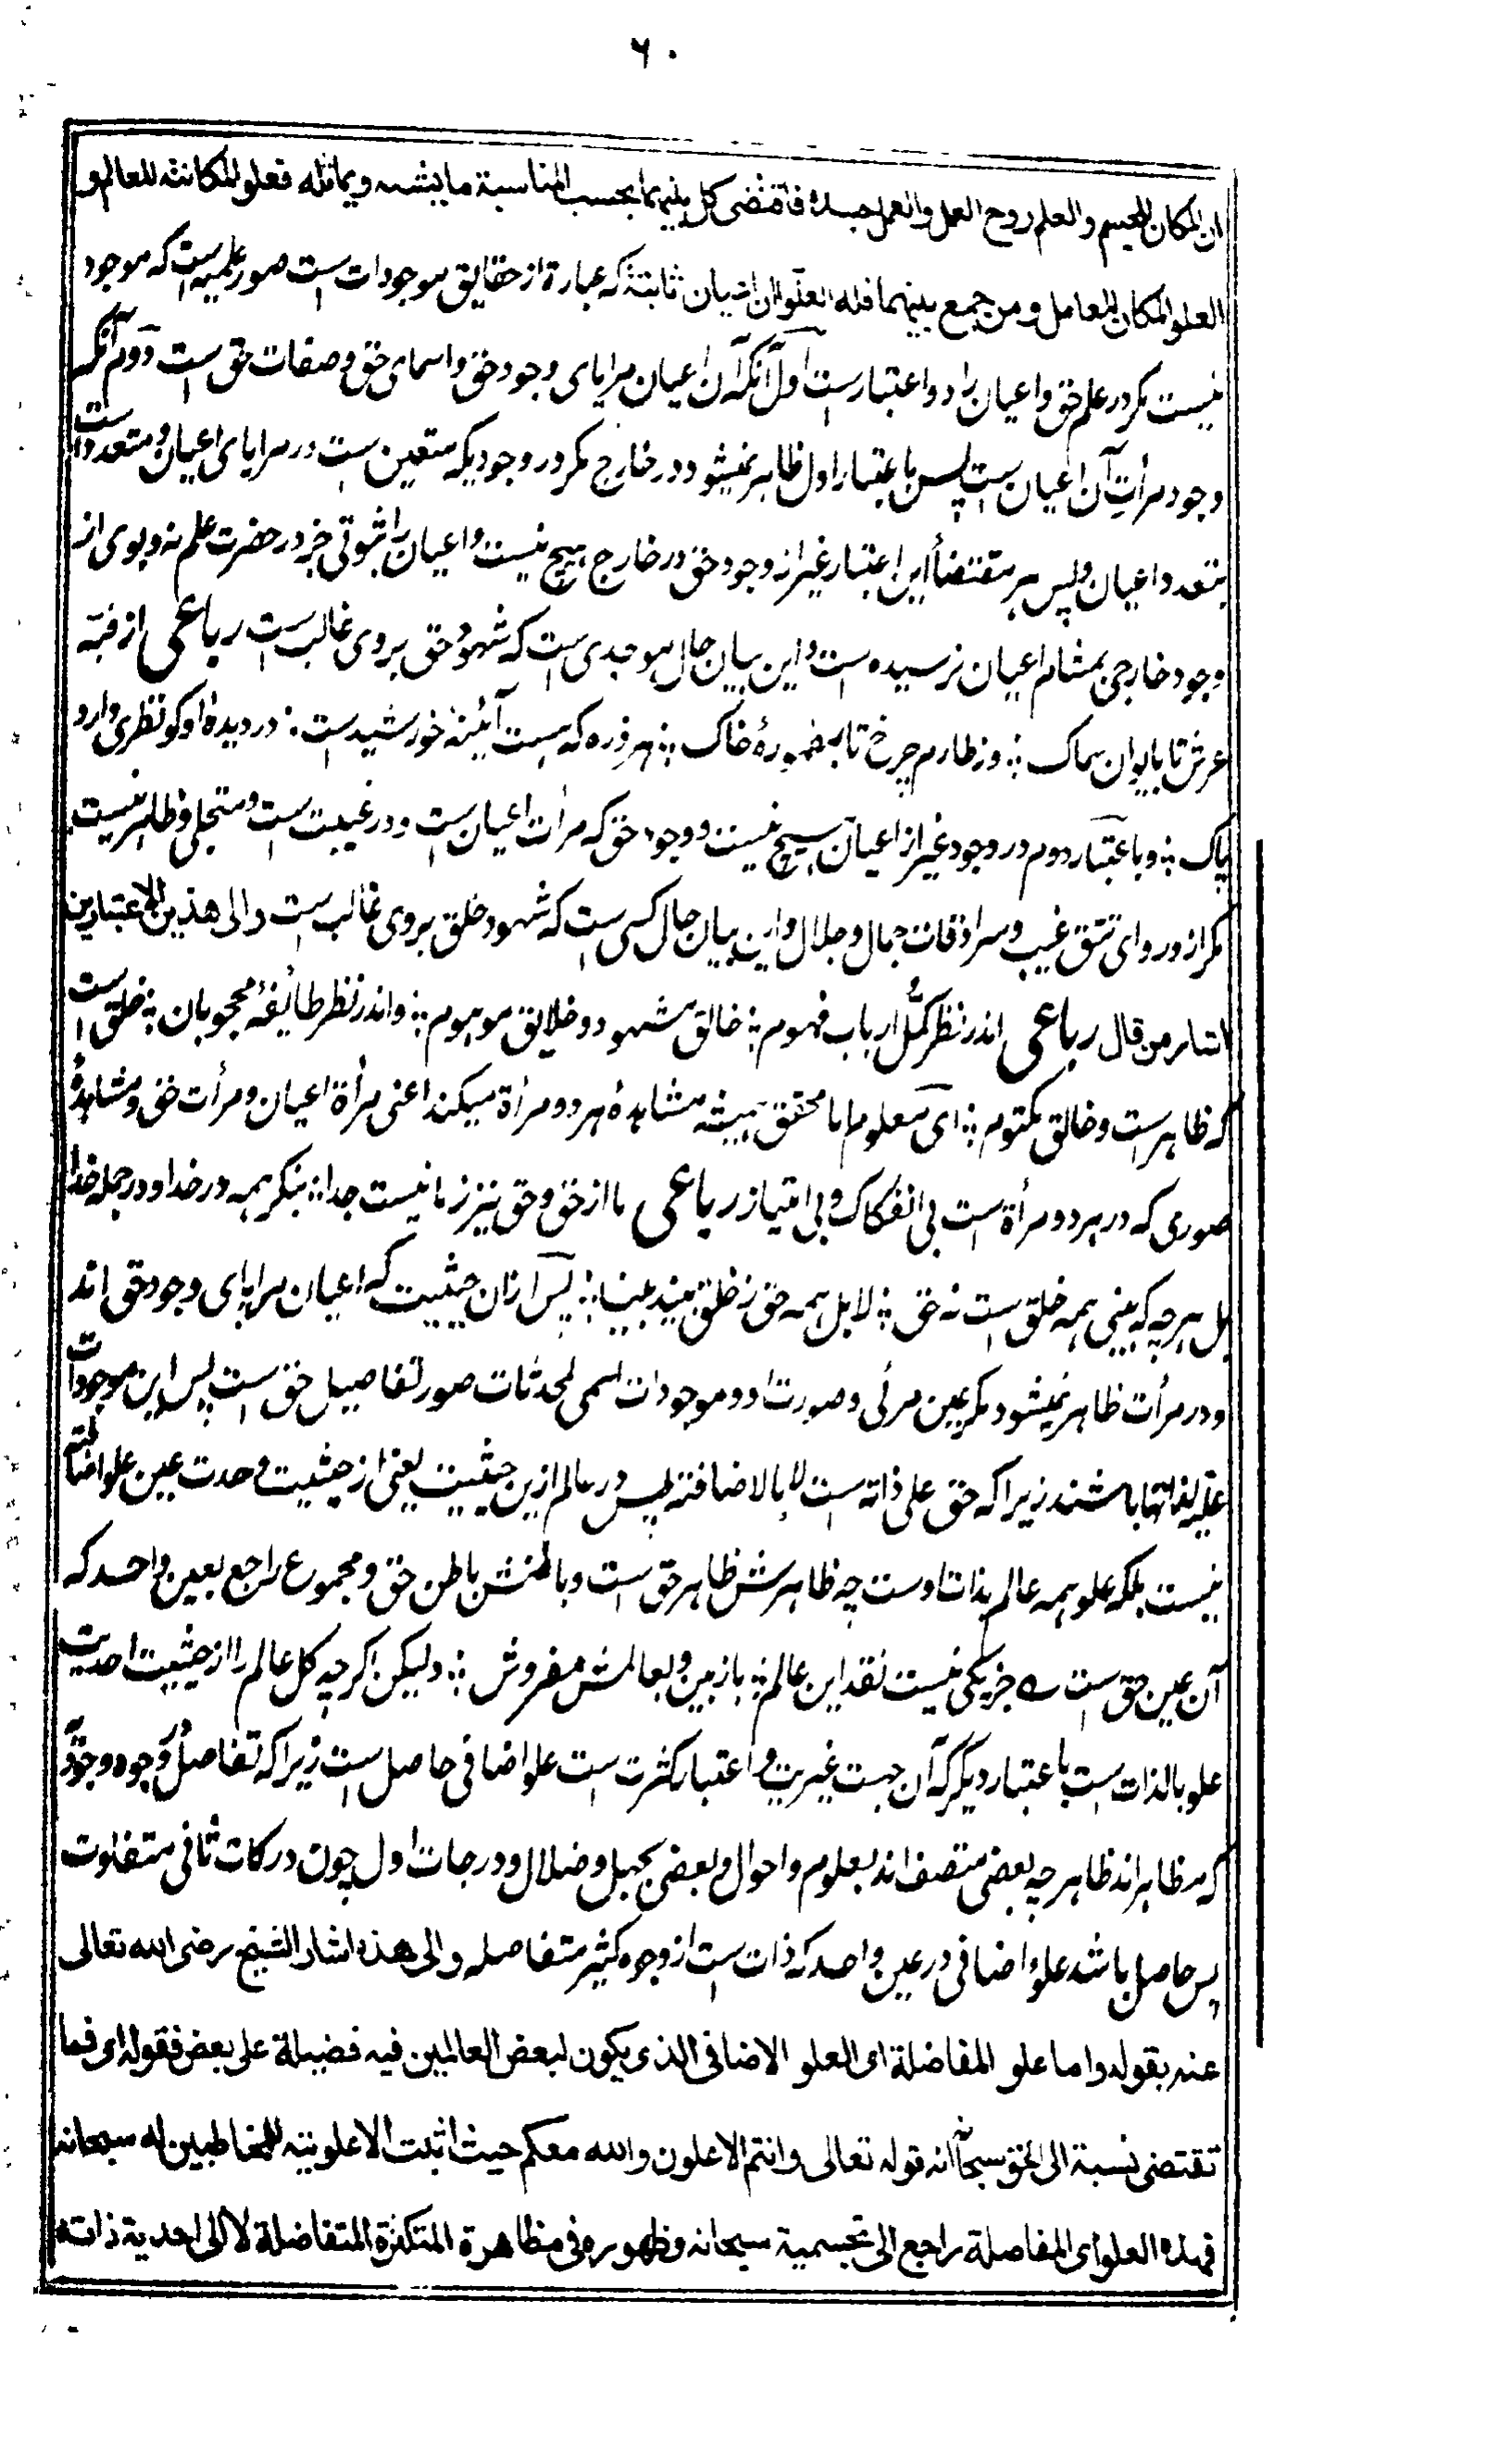 ۶۰
ان المکان للجسم والعلم روح العمل والعمل جسده فاقتضی کل منهما بحسب المناسبة ما یشبهه ویماثله فعلو المکانة للعالم و
العلو المکان للعامل و من جمع بینهما فله العلوان اعیان ثابتهٔ که عبارة از حقایق موجودات است صور علمیه است که موجود
نیست مکر در علم حق و اعیان را دو اعتبار ست اول آنکه آن اعیان مرایای وجود حق و اسمای حق و صفات حق ست دوم آنکه
وجود مرأت آن اعیان ست پس باعتبار اول ظاهر نمیشود در خارج مکر در وجودیکه متعین ست در مرایای اعیان و متعدد است
بتعدد اعیان و پس بر مقتضأ این اعتبار غیر از وجود حق در خارج هیچ نیست و اعیان را ثبوتی جز در حضرت علم نه و بوی از
وجود خارجی بمشام اعیان نرسیده ست و این بیان حال موحدی ست که شهود حق بروی غالب ست رباعی از قبهٔ
عرش تا بایوان سماک ؛ وز طارم چرخ تا بمعمورهٔ خاک ؛ هر ذره که هست آئینهٔ خورشید ست ؛ در دیدهٔ او کو نظری دارد
پاک ؛ و باعتبار دوم در وجود غیر از اعیان هیچ نیست و وجود حق که مرأت اعیان ست و در غیبت ست و متجلی و ظاهر نیست
مکر از ورای تتق غیب و سرادقات جمال و جلال و این بیان حال کسی ست که شهود خلق بروی غالب ست والی هذین الاعتبارین
اشار من قال رباعی اندر نظر کمل ارباب فهوم ؛ خالق مشهود و خلایق موهوم ؛ و اندر نظر طایفهٔ محجوبان ؛ خلق ست
که ظاهر ست و خالق مکتوم ؛ ای معلوم اما محقق همیشه مشاهدهٔ هر دو مرأة میکند اعنی مرأة اعیان و مرأت حق و مشاهدهٔ
صوری که در هر دو مرأة ست بی انفکاک و بی امتیاز رباعی ما از حق و حق نیز ز ما نیست جدا ؛ بنکر همه در خدا و در جمله خدا
بل هر چه که بینی همه خلق ست نه حق ؛ لا بل همه حق ز خلق بیند بینا ؛ پس از ان حیثیت که اعیان مرایای وجود حق اند
و در مرأت ظاهر نمیشود مکر عین مرئی و صورت او و موجودات اسمی لمحدثات صور تفاصیل حق ست پس این موجودات
علیه لذاتها باشند زیرا که حق علی ذاته ست لا بالاضافته پس در عالم ازین حیثیت یعنی از حیثیت وحدت عین علو اضافتم
نیست بلکه علو همه عالم بذات اوست چه ظاهرش ظاهر حق ست و باطنش باطن حق و مجموع راجع بعین واحد که
آن عین حق ست ے جز یکی نیست نقد این عالم ؛ باز بین و بعالمش مفروش ؛ ولیکن اکر چه کل عالم را از حیثیت احدیت
علو بالذات ست باعتبار دیکر که آن جهت غیریت و اعتبار کثرت ست علو اضافی حاصل ست زیرا که تفاضل در وجوه وجود
که مظاهر اند ظاهر چه بعضی متصف اند بعلوم و احوال و بعضی بجهل و ضلال و درجات اول چون درکات ثانی متفاوت
پس حاصل باشد علو اضافی در عین واحد که ذات ست از وجوه کثیر متفاضله والی هذه اشار الشیخ رضی الله تعالی
عنه بقوله واما علو المفاضلة ای العلو الاضافی الذی یکون لبعض العالمین فیه فضیلة علی بعض فقوله ای فما
تقتضی نسبة الی الحق سبحانه قوله تعالی وانتم الاعلون والله معکم حیث اثبت الاعلویته للمخاطبین له سبحانه
فهذه العلو ای المفاضلة راجع الی تجسمیة سبحانه وظهوره فی مظاهرة المتکثرة المتفاضلة لا الی احدیة ذاته